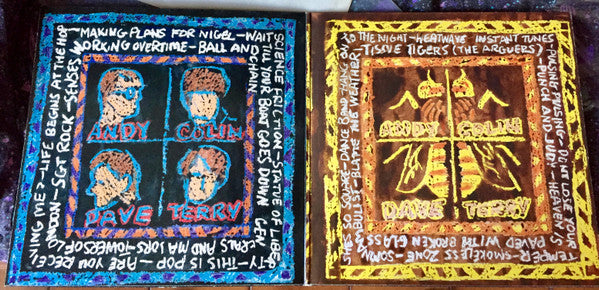 SCIENCE FRICTION-STATUE OF LIBE
RTY-THIS IS POP-ARE YOU RECEI
VING ME?-LIFE BEGINS AT THE HOP
MAKING PLANS FOR NIGEL-WAIT
TILL YOUR BOAT GOES DOWN GEN
ERALS AND MAJORS-TOWERS OF
LONDON-SGT ROCK-SENSES W
ORKING OVERTIME-BALL AND
CHAIN
ANDY COLIN
DAVE TERRY
SHE'S SO SQUARE-DANCE BAND-HANG ON TO
THE NIGHT-HEATWAVE INSTANT TUNES
PULSING PULSING-DON'T LOSE YOUR
TEMPER-SMOKELESS ZONE-SOMN
AMBULIST-BLAME THE WEATHER
TISSUE TIGERS (THE ARGUERS)
PUNCH AND JUDY-HEAVEN IS
PAVED WITH BROKEN GLASS
ANDY COLIN
DAVE TERRY